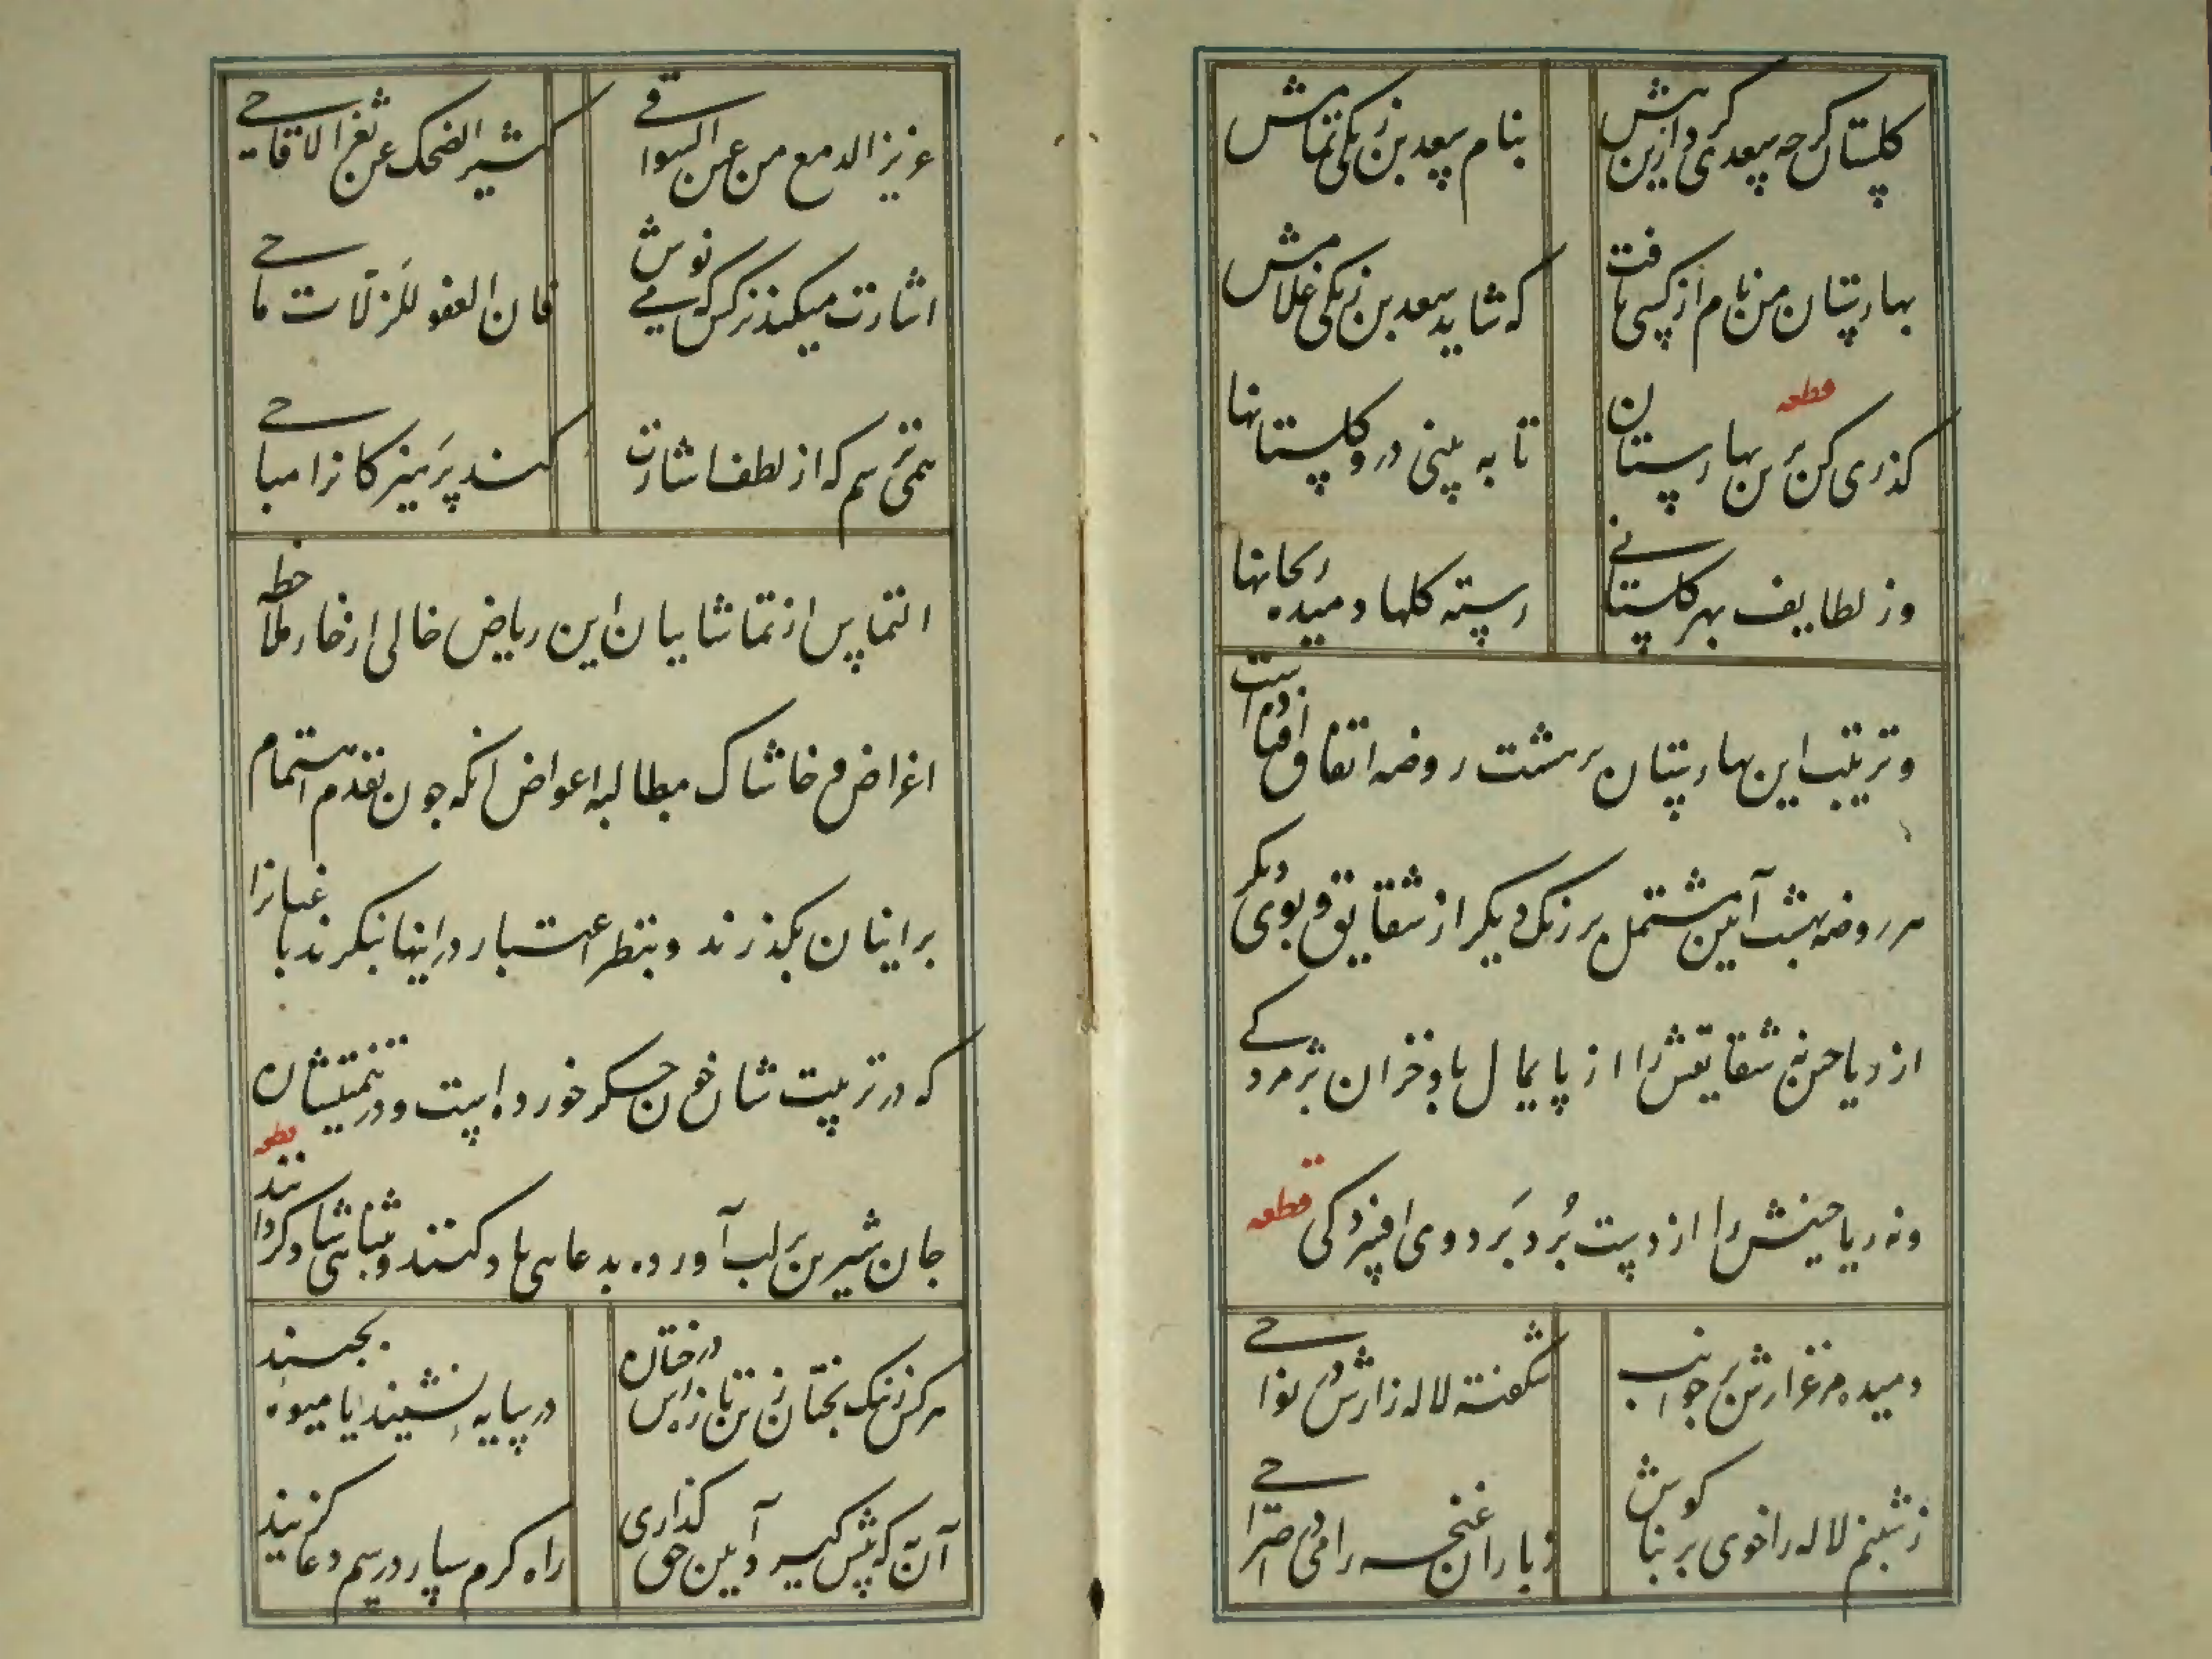 گلستان گرچه سعدی کرد ازین پیش
بنام سعد بن زنگی تمامش
بهارستان من نام از کسی یافت
که شاید سعد بن زنگی غلامش
قطعه
گذری کن برین بهارستان
تا به بینی درو گلستانها
وز لطایف بهر گلستانی
رسته گلها دمیده ریحانها
و ترتیب این بهارستان بر هشت روضه اتفاق افتاده است
هر روضه بهشت آیین مشتمل بر رنگ دیگر از شقایق و بوی دیگر
از ریاحین نه شقایقش را از پایمال باد خزان پژمردگی
و نه ریاحینش را از دست برد برد دی افسردگی قطعه
دمیده مرغزارش بر جوانب
شکفته لاله زارش در نواحی
ز شبنم لاله را خوی بر بناگوش
ز باران غنچه را می در صراحی
غزیر الدمع من عین السواقی
کثیر الضحک عن ثغر الاقاحی
اشارت میکند نرگس که می نوش
فان العفو للزلات ماحی
همی ترسم که از لطف اشارت
کند پرهیزکارانرا مباحی
التماس از تماشاییان این ریاض خالی از خار ملاحظه
اغراض و خاشاک مطالبه اعواض آنکه چون بقدم اهتمام
بر اینان بگذرند و بنظر اعتبار در اینها بنگرند باغبانرا
که در تربیتشان خون جگر خورده است و در تنمیتشان
جان شیرین بر لب آورده بدعایی یاد کنند و بثنایی شاد گردانند
قطعه
هر کز نیک بختان زین تازه رس درختان
در سایه نشیند یا میوه بچیند
آن به که پیش گیرد آیین حق گذاری
راه کرم سپارد رسم دعا گزیند